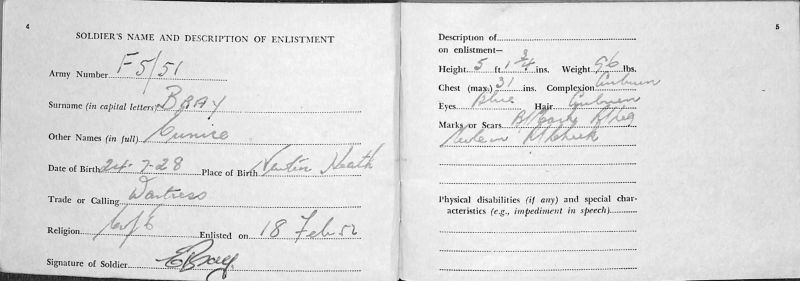 4
SOLDIER'S NAME AND DESCRIPTION OF ENLISTMENT
Army Number F5/51
Surname (in capital letters) BRAY
Other Names (in full)
Date of Birth 24-7-28 Place of Birth Heath
Trade or Calling Waitress
Religion C of E Enlisted on 18 Feb 52
Signature of Soldier EBray
5
Description of
on enlistment—
Height 5 ft. 1 3/4 ins. Weight 96 lbs.
Chest (max.) 31 ins. Complexion Auburn
Eyes Blue Hair Auburn
Marks or Scars
Physical disabilities (if any) and special char-
acteristics (e.g., impediment in speech)